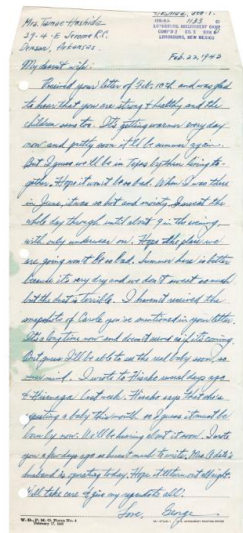 Mrs. George Hoshida
39-4-E Jerome R.C.
Denson, Arkansas
LORDSBURG INTERNMENT CAMP
LORDSBURG, NEW MEXICO
Feb. 22, 1943
My dearest wife:
Received your letter of Feb. 10th and was glad
to hear that you are strong & healthy and the
children are too. It's getting warmer every day
now and pretty soon it'll be summer again.
But I guess we'll be in Texas by then living to-
gether. Hope it won't be so bad. When I was there
in June, it was so hot and I went the
whole day through until about 9 in the evening,
with only underwear on. Hope the place we
are going won't be so bad. Summer here is better
because it's very dry and we don't sweat so much
but the heat is terrible. I haven't received the
snapshots of Carole you've mentioned in your letter.
It's a long time now and doesn't seem as if it's coming.
But guess I'll be able to see the real baby soon, so
never mind. I wrote to Hisako several days ago
& last week. Hisako says that she's
expecting a baby this month so I guess it must be
born by now. We'll be hearing about it soon. I wrote
you a few days ago so haven't much to write. Mrs.
husband is operating today. Hope it'll turn out allright.
Well take care & give my regards to all!
Love, George
W.D., P.M.G. Form No. 4